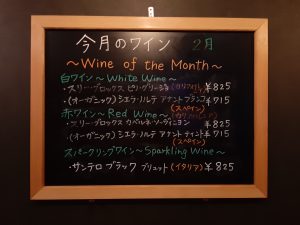 今月のワイン 2月
～Wine of the Month～
白ワイン～White Wine～
・スリーブロックス ピノ・グリージョ (カリフォルニア) ¥825
・(オーガニック) シエラ・ノルテ アナント ブランコ ¥715
(スペイン)
赤ワイン～Red Wine～
・スリーブロックス カベルネ・ソーヴィニヨン ¥825
・(オーガニック) シエラ・ノルテ アナント ティント ¥715
(スペイン)
スパークリングワイン～Sparkling Wine～
・サンテロ ブラック ブリュット (イタリア) ¥825